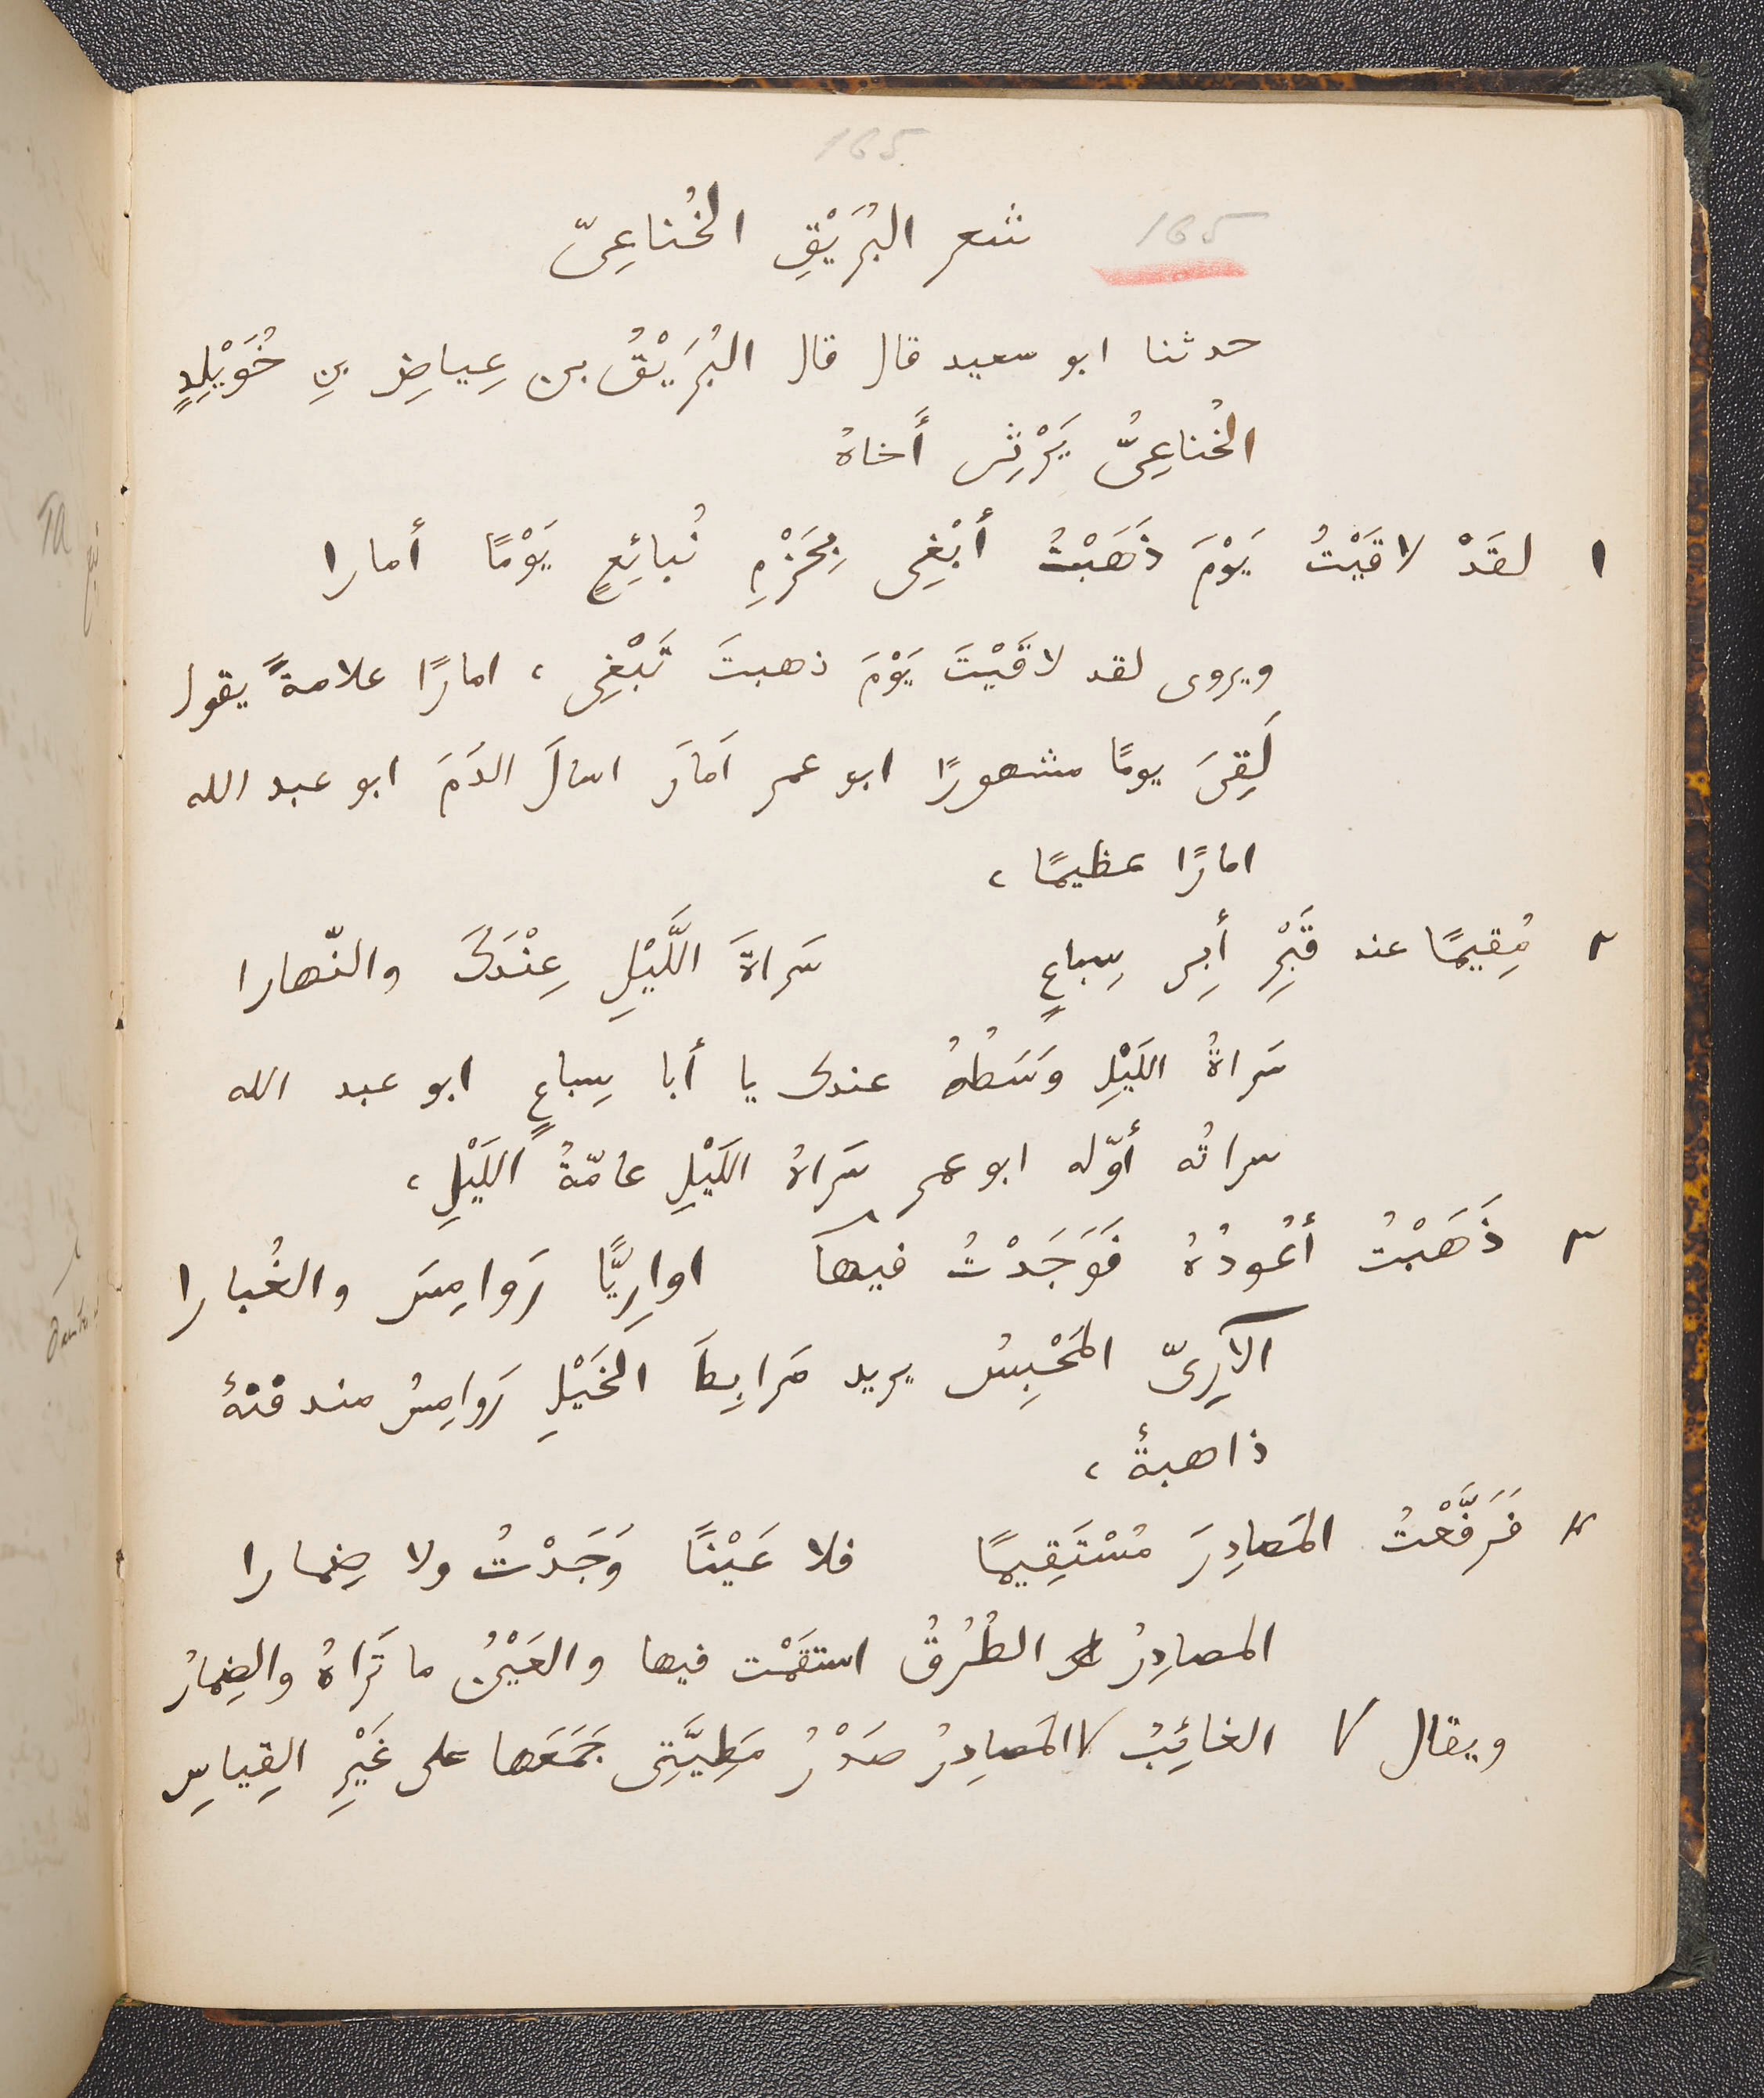 165
165 شعر البُرَيْقِ الخُناعِىّ
حدثنا ابو سعيد قال قال البُرَيْقُ بن عِياضِ بنِ خُوَيْلِدٍ
الخُناعِىُّ يَرْثِى أَخاهُ
١ لقَدْ لاقَيْتُ يَوْمَ ذَهَبْتُ أَبْغِى بِحَزْمِ نُبائِعٍ يَوْمًا أمارا
ويروى لقد لاقَيْتَ يَوْمَ ذهبتَ تَبْغِى ، امارًا علامةً يقول
لَقِىَ يومًا مشهورًا ابو عمر اَمَارَ اسالَ الدَمَ ابو عبد الله
امارًا عظيمًا ،
٢ مُقِيمًا عند قَبْرِ أَبِى سِباعٍ سَراةَ اللَّيْلِ عِنْدَكَ والنّهارا
سَراةُ اللَيْلِ وَسَطُهُ عندك يا أبا سِباعٍ ابو عبد الله
سراتُه أوّله ابو عمر سَراةُ اللَيْلِ عامّةُ اللَيْلِ ،
٣ ذَهَبْتُ أَعُودُهُ فَوَجَدْتُ فيها اوارِيًّا رَوامِسَ والغُبارا
الآرِىّ المَحْبِسُ يريد مَرابِطَ الخَيْلِ رَوامِسُ مندفنةٌ
ذاهبةٌ ،
٤ فَرَفَّعْتُ المَصادِرَ مُسْتَقِيمًا فلا عَيْنًا وَجَدْتُ ولا ضِمارا
المصادِرُ الطُرُقُ استقَمْت فيها والعَيْنُ ما تَراهُ والضِمارُ
ويقال \/ الغائِبُ \/ المَصادِرُ صَدْرُ مَطِيَّتِى جَمَعَها على غَيْرِ القِياسِ